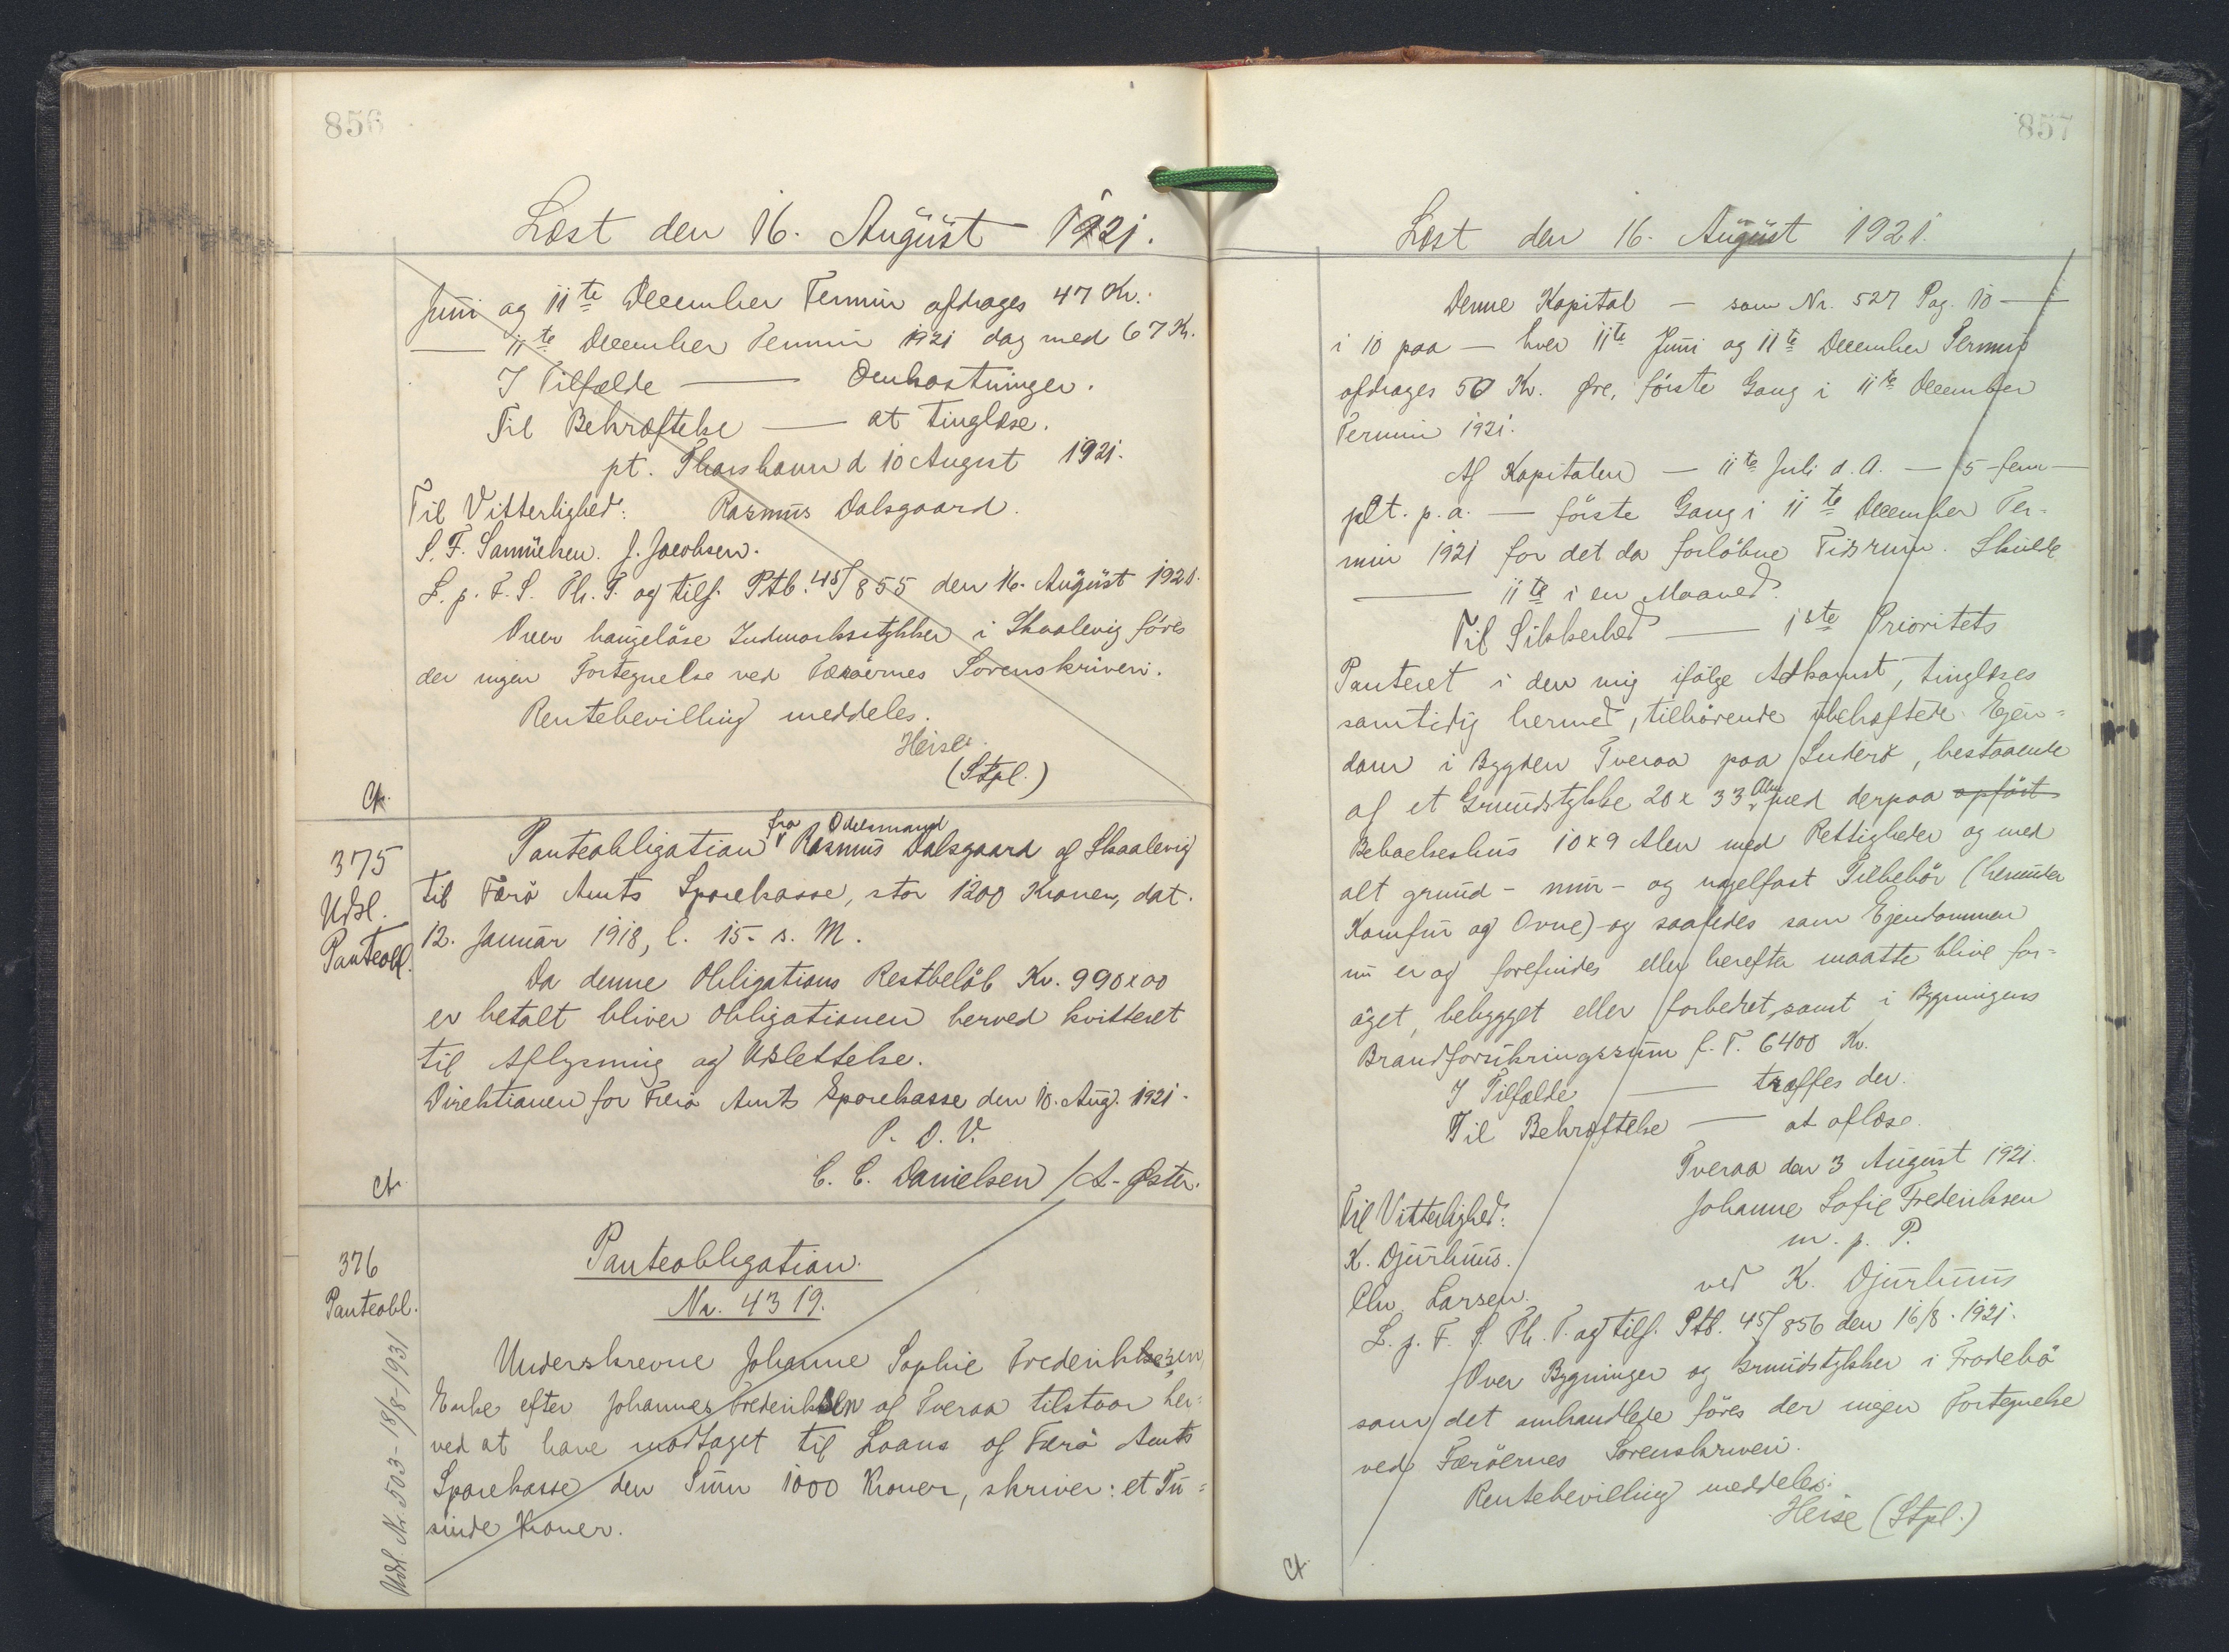 856
Læst den 16. August 1921.
Juni og 11te December Termin afdrages 47 Kr.
— 11te December Termin 1921 dog med 67 Kr.
I Tilfælde — Omkostninger.
Til Bekræftelse — at tinglæse.
pt. Thorshavn d 10 August 1921.
Til Vitterlighed: Rasmus Dalsgaard.
S. F. Samuelsen. J. Jacobsen.
L. p. F. S. Th. T. og tilf. Ptb. 45/855 den 16. August 1921.
Over haugeløse Indmarksstykker i Skaalevig føres
der ingen Fortegnelse ved Færøernes Sorenskriveri.
Rentebevilling meddeles.
Heise.
(Stpl.)
Ct.
375
Udsl.
Panteobl.
Panteobligation fra Odelsmand Rasmus Dalsgaard af Skaalevig
til Færø Amts Sparekasse, stor 1200 Kroner, dat.
12. Januar 1918, l. 15. s. M.
Da denne Obligations Restbeløb Kr. 990x00
er betalt bliver Obligationen herved kvitteret
til Aflysning og Udslettelse.
Direktionen for Færø Amts Sparekasse den 10. Aug. 1921.
P. D. V.
C. C. Danielsen / A. Øster.
Ct.
376
Panteobl.
Udsl. Nr. 503 - 18/8-1931
Panteobligation.
Nr. 4319.
Underskrevne Johanne Sophie Frederiksen,
Enke efter Johannes Frederiksen af Tveraa tilstaar her=
ved at have modtaget til Laans af Færø Amts
Sparekasse den Sum 1000 Kroner, skriver: et Tu=
sinde Kroner.
857
Læst den 16. August 1921.
Denne Kapital — som Nr. 527 Pag. 10 —
i 10 paa — hver 11te Juni og 11te December Termin
afdrages 50 Kr. Øre, første Gang i 11te December
Termin 1921.
Af Kapitalen — 11te Juli d. A. — 5 - fem —
pCt. p. a. — første Gang i 11te December Ter=
min 1921 for det da forløbne Tidsrum. Skulde
— 11te i en Maaned.
Til Sikkerhed — 1ste Prioritets
Panteret i den mig ifølge Adkomst, tinglæses
samtidig hermed, tilhørende ubehæftede Ejen=
dom i Bygden Tveraa paa Suderø, bestaaende
af et Grundstykke 20 x 33 Alen med derpaa opført
Beboelseshus 10 x 9 Alen med Rettigheder og med
alt grund- mur- og nagelfast Tilbehør (herunder
Komfur og Ovne) og saaledes som Ejendommen
nu er og forefindes eller herefter maatte blive for=
øget, bebygget eller forbedret, samt i Bygningens
Brandforsikringssum f. T. 6400 Kr.
I Tilfælde — træffes der.
Til Bekræftelse — at aflæse.
Tveraa den 3 August 1921.
Til Vitterlighed: Johanne Sofie Frederiksen
m. p. P.
K. Djurhuus. ved K. Djurhuus
Chr. Larsen.
L. p. F. S. Th. T. og tilf. Ptb. 45/856 den 16/8. 1921.
Over Bygninger og Grundstykker i Frodebø
som det omhandlede føres der ingen Fortegnelse
ved Færøernes Sorenskriveri.
Rentebevilling meddeles.
Heise (Stpl.)
Ct.